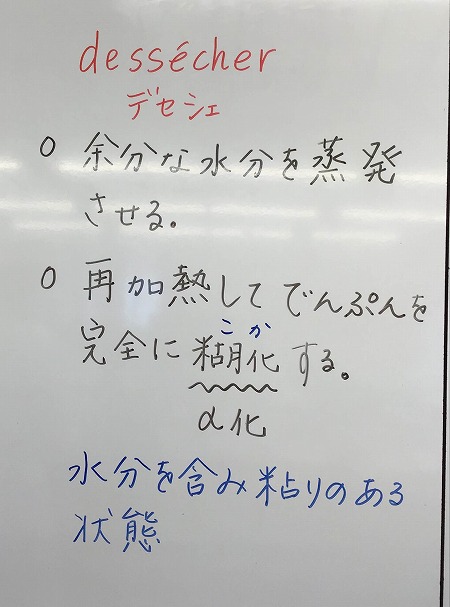 dessécher
デセシェ
○ 余分な水分を蒸発
させる。
○ 再加熱してでんぷんを
こか
完全に糊化する。
α化
水分を含み粘りのある
状態